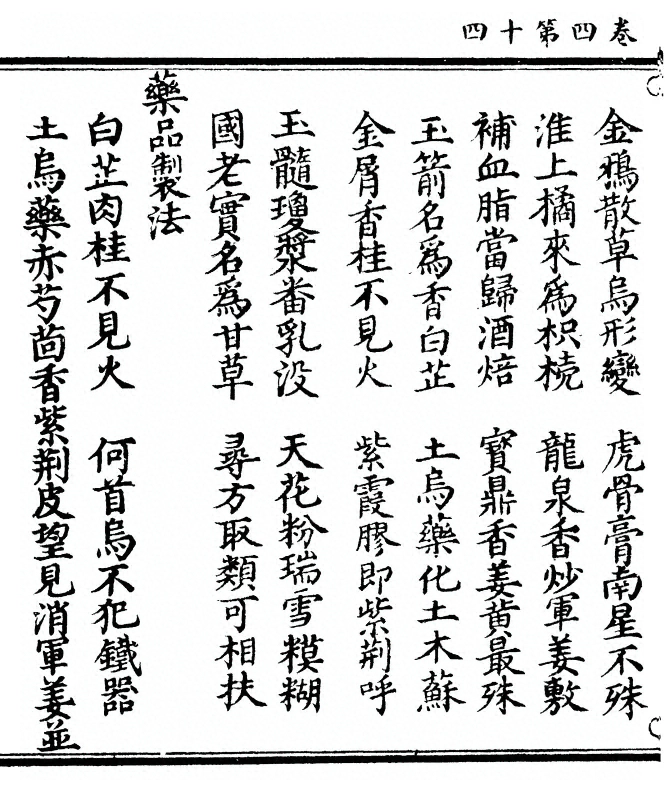 卷四第十四
金鴉散草烏形變 虎骨膏南星不殊
淮上橘來爲枳梡 龍泉香炒軍姜敷
補血脂當歸酒焙 寶鼎香姜黄最殊
玉箭名爲香白芷 土烏藥化土木蘇
金屑香桂不見火 紫霞膠即紫荆呼
玉髓瓊漿畨乳没 天花粉瑞雪糢糊
國老實名爲甘草 尋方取𩔖可相扶
藥品製法
白芷肉桂不見火 何首烏不犯鐵器
土烏藥赤芍茴香紫荆皮望見消軍姜並